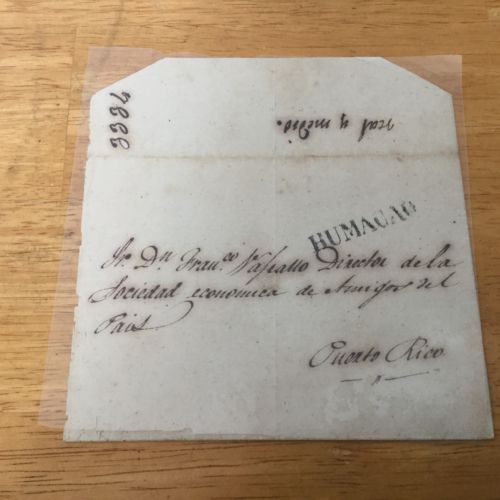 3334
real y medio.
HUMACAO
Sr. Dn. Franco. Vassallo Director de la
Sociedad economica de Amigos del
Pais
Puerto Rico